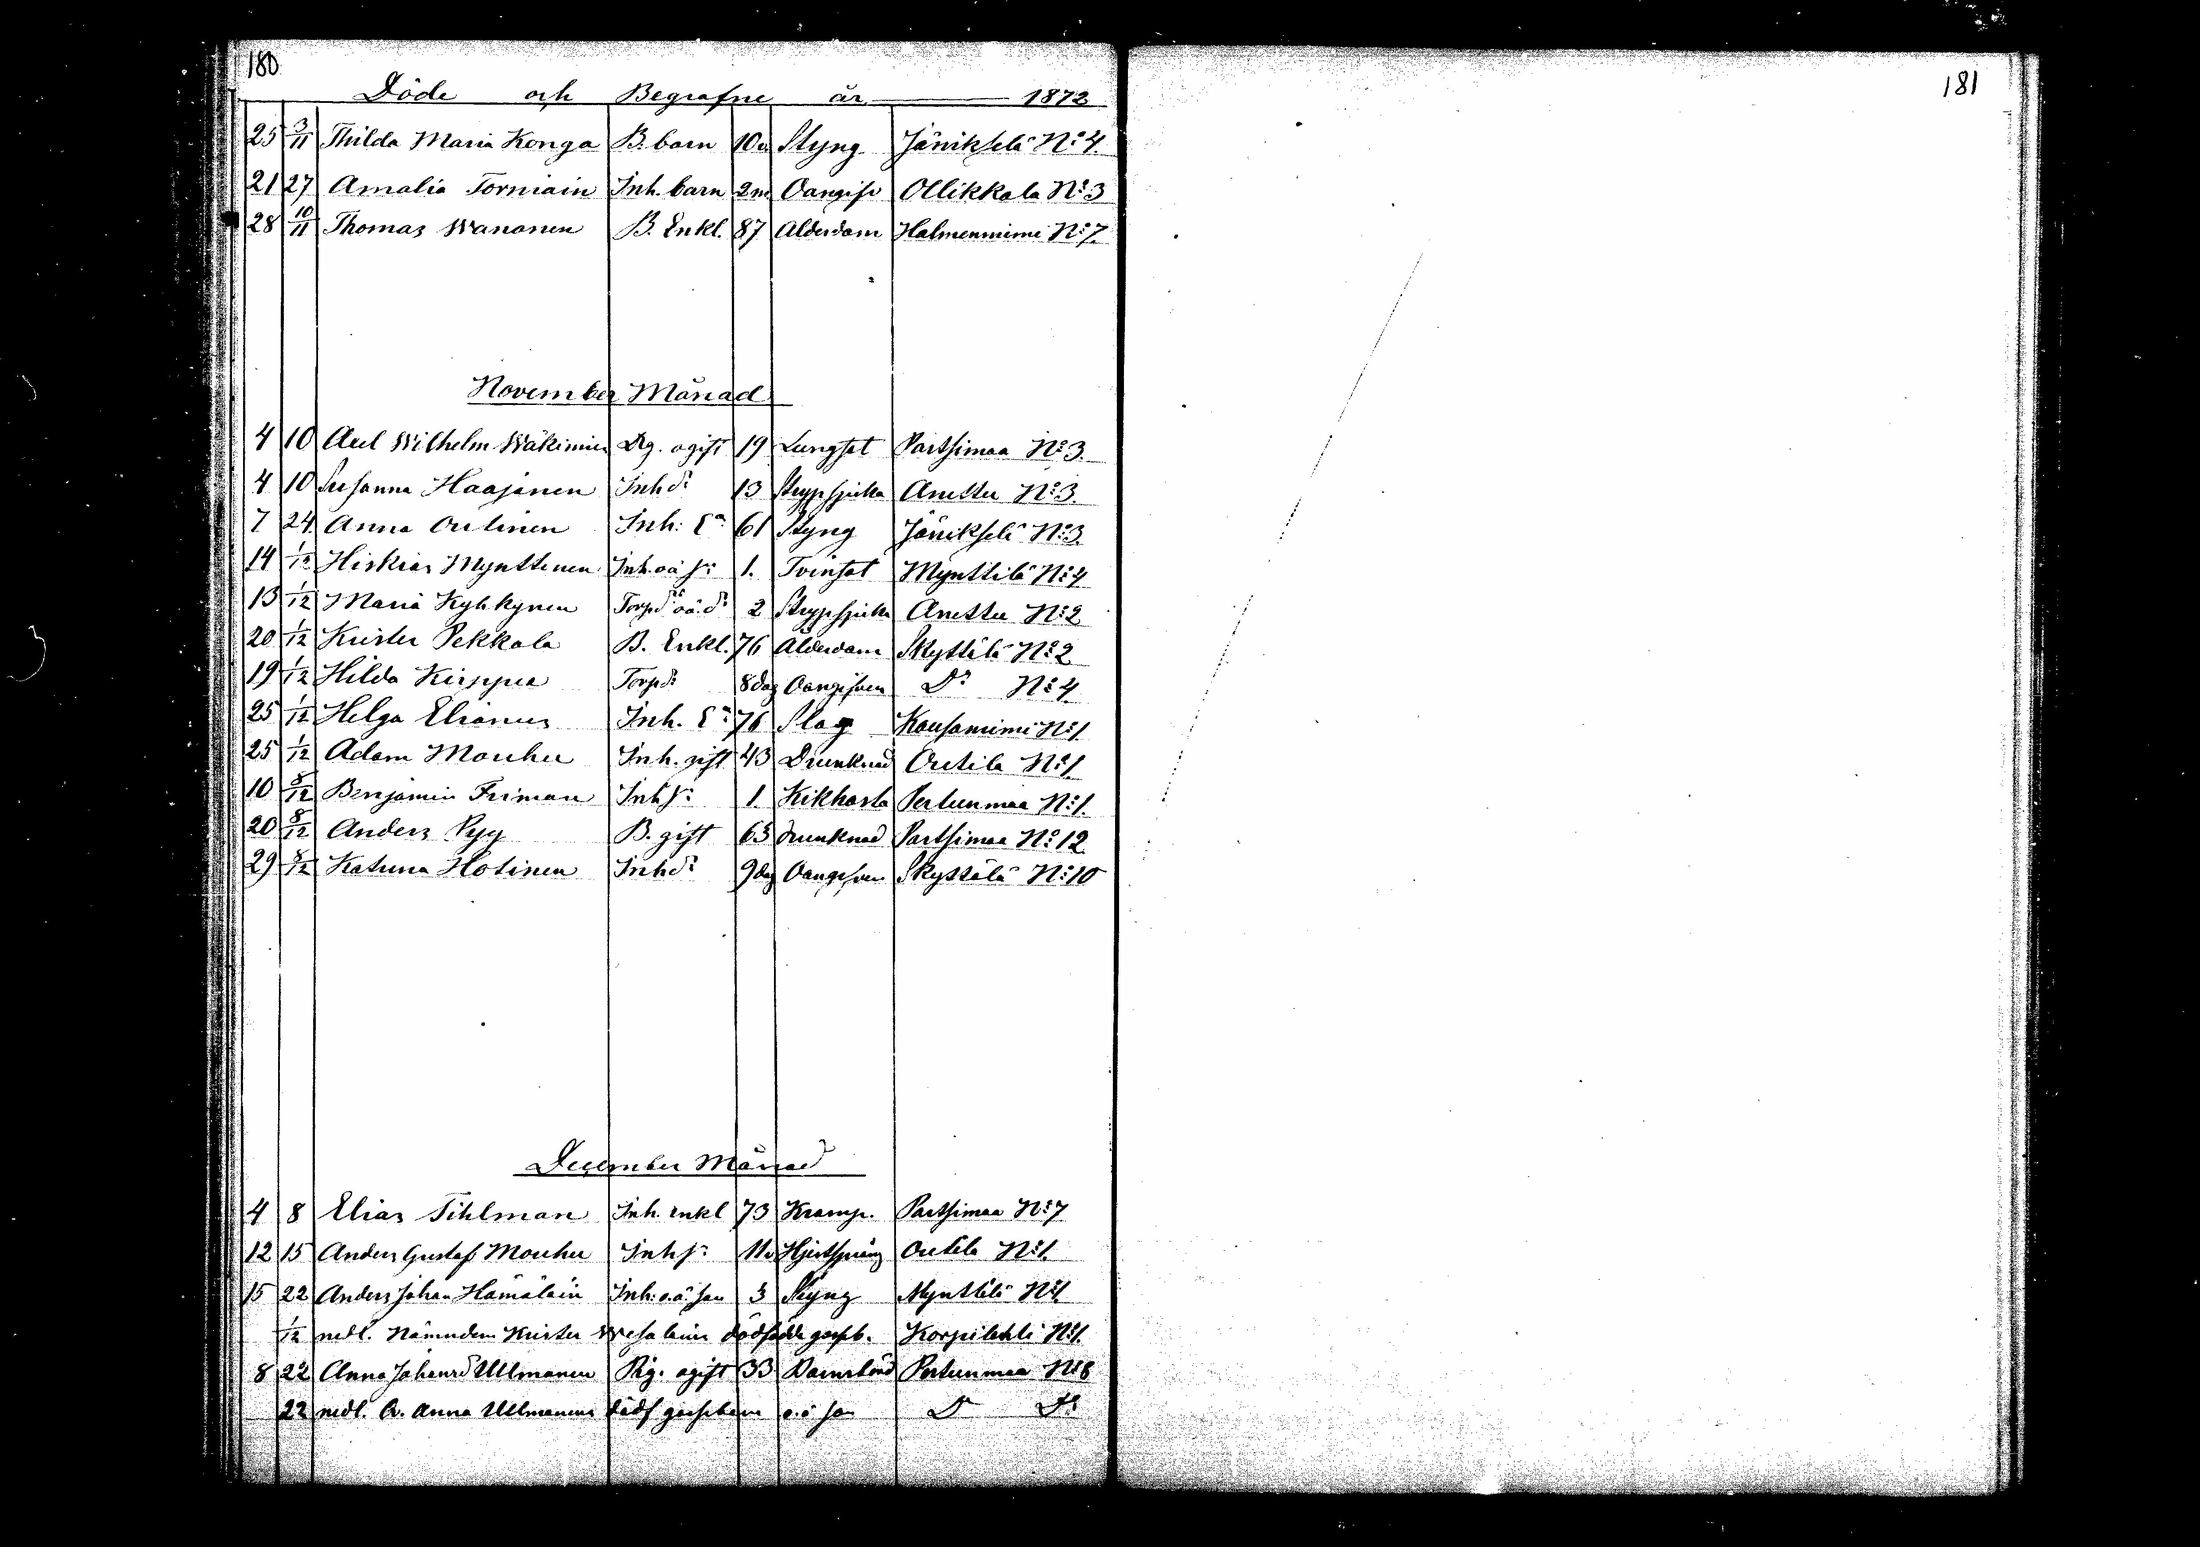 180
Döde och Begrafne år 1872
25 3/11 Thilda Maria Konga B. barn 10v Styng Jänikselä No 4.
21 27 Amalia Torniain Inh. barn 2m Oangifv Ollikkala No 3
28 10/11 Thomas Wananen B. Enkl. 87 Ålderdom Halmenniemi No 7.
November Månad
4 10 Axel Wilhelm Wäkimies Dg. ogift 19 Lungsot Partsimaa No 3.
4 10 Susanna Haajanen Inh dr 13 Strypsjuka Anettu No 3.
7 24 Anna Outinen Inh: Ea 61 Styng Jänikselä No 3
14 1/12 Hiskias Mynttinen Inh. oä sn 1. Tvinsot Mynttilä No 4
13 1/12 Maria Kyhkynen Torpd oä. dr 2 Strypsjuka Anettu No 2
20 1/12 Krister Pekkala B. Enkl. 76 Ålderdom Skyttilä No 2
19 1/12 Hilda Kirppu Torpdr 8 dag Oangifven Do No 4
25 1/12 Helga Elianus Inh. Ea 76 Slag Kousaniemi No 1.
25 1/12 Adam Mouhu Inh. gift 43 Drunknad Outila No 1.
10 8/12 Benjamin Friman Inh sn 1. Kikhosta Pertunmaa No 1.
20 8/12 Anders Pyy B. gift 63 Drunknad Partsimaa No 12
29 8/12 Katrina Hotinen Inhdr 9 dag Oangifven Skyttälä No 10
December Månad
4 8 Elias Tihlman Inh. enkl 73 Kramp. Partsimaa No 7
12 15 Anders Gustaf Mouhu Inh sn 11v Hjertsprång Outila No 1.
15 22 Anders Johan Hämäläin Inh: o.ä. son 3 Styng Mynttilä No 1
1/12 nedl. Nämndem Krister Wesalains dödfödde gosseb. Korpilahti No 1.
8 22 Anna Johansd Ullmanen Pig. ogift 33 Barnsbörd Pertunmaa No 8
22 nedl. Qv. Anna Ullmanens dödf gossebarn o.ä son Do Do
181